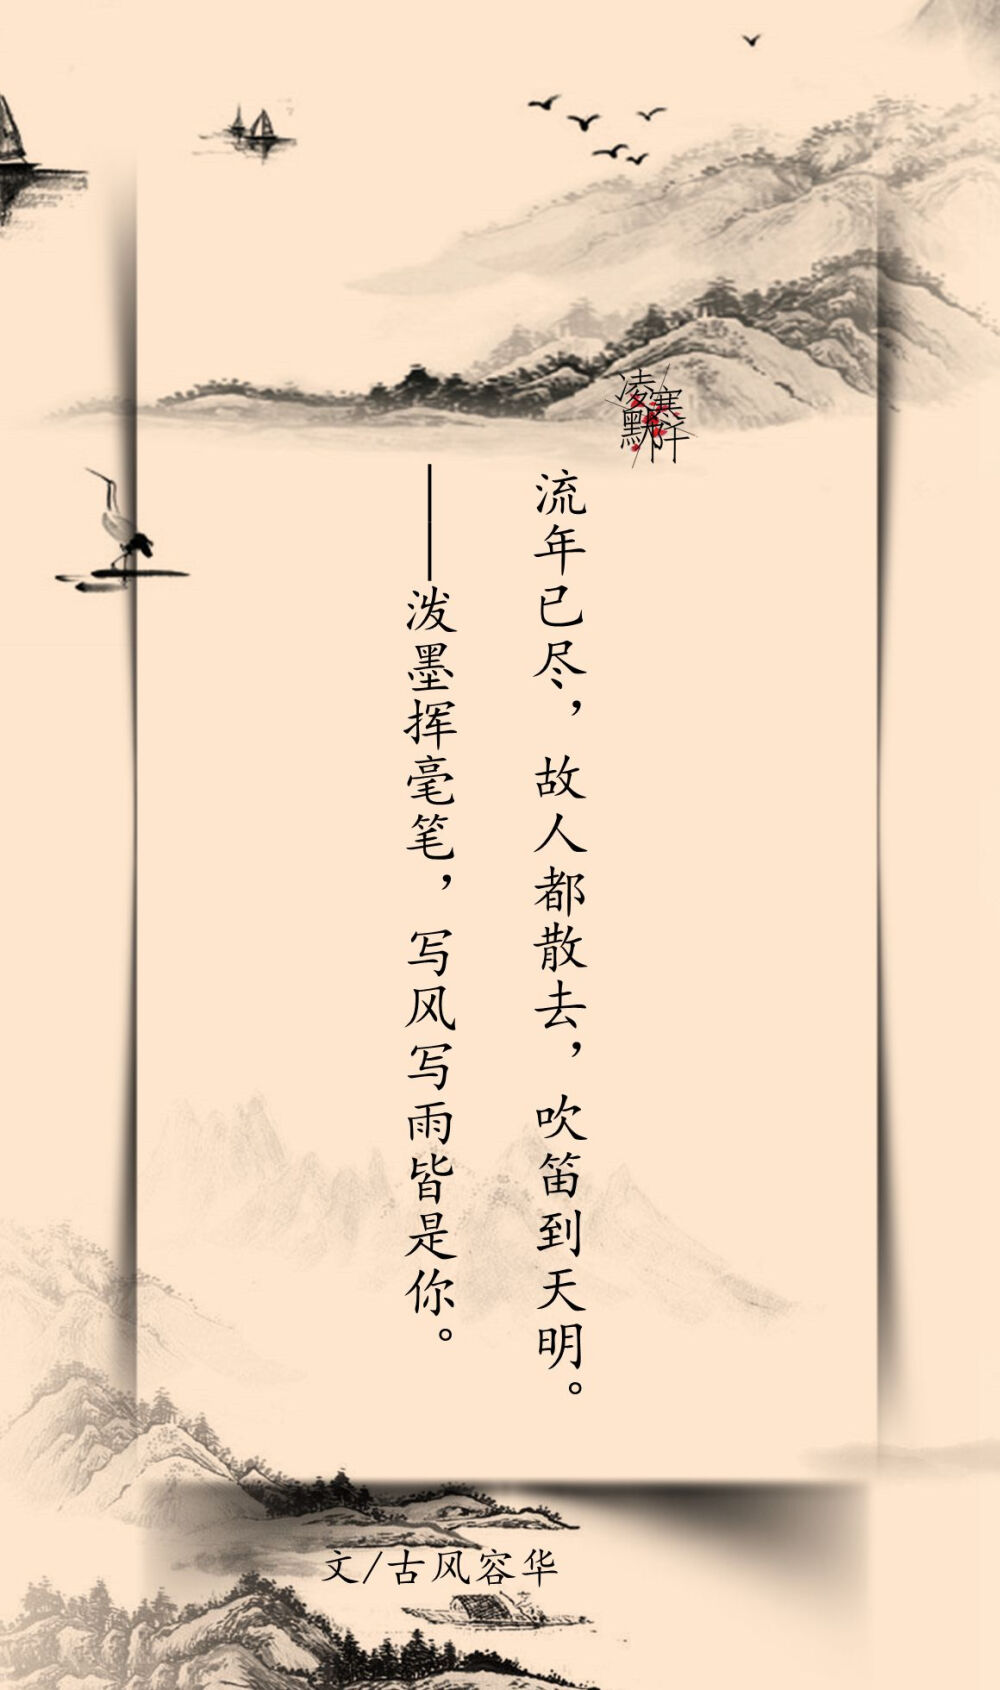 凌寒
默阡
流年已尽，故人都散去，吹笛到天明。
——泼墨挥毫笔，写风写雨皆是你。
文/古风容华